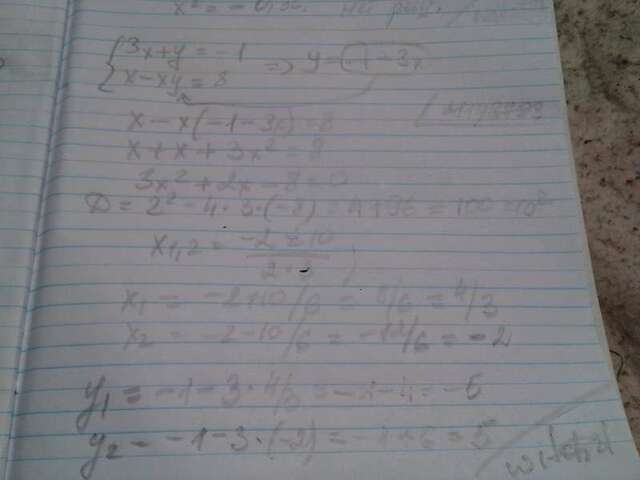 3x+y=-1
x-xy=8 => y=-1-3x
x-x(-1-3x)=8
x+x+3x²=8
3x²+2x-8=0
D=2²-4·3·(-8)=4+96=100=10²
x1,2=-2±10/2·3
x1=-2+10/6=8/6=4/3
x2=-2-10/6=-12/6=-2
y1=-1-3·4/3=-1-4=-5
y2=-1-3·(-2)=-1+6=5